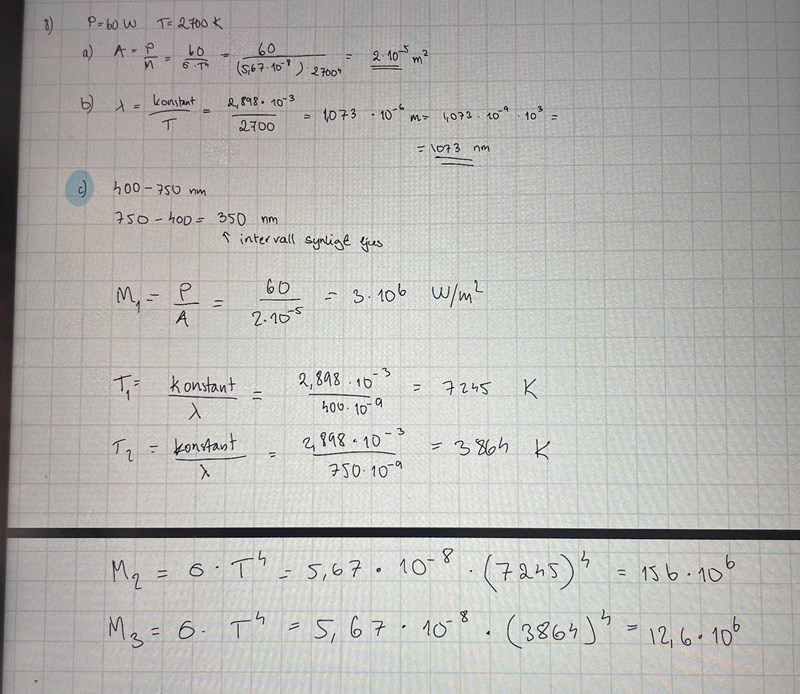 8) P=60 W T=2700 K
a) A = P/M = 60/σ·T⁴ = 60/(5,67·10⁻⁸)·2700⁴ = 2·10⁻⁵ m²
b) λ = konstant/T = 2,898·10⁻³/2700 = 1,073·10⁻⁶ m = 1,073·10⁻⁹·10³ =
= 1073 nm
c) 400-750 nm
750-400 = 350 nm
↑ intervall synligt ljus
M₁ = P/A = 60/2·10⁻⁵ = 3·10⁶ W/m²
T₁ = konstant/λ = 2,898·10⁻³/400·10⁻⁹ = 7245 K
T₂ = konstant/λ = 2,898·10⁻³/750·10⁻⁹ = 3864 K
M₂ = σ·T⁴ = 5,67·10⁻⁸·(7245)⁴ = 156·10⁶
M₃ = σ·T⁴ = 5,67·10⁻⁸·(3864)⁴ = 12,6·10⁶